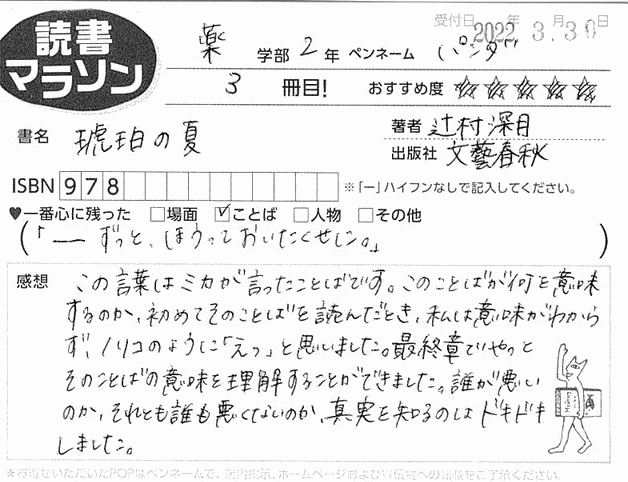 読書
マラソン
受付日 2022年 3月 30日
薬 学部 2 年 ペンネーム パンダ
3 冊目! おすすめ度 ☆☆☆☆☆
書名 琥珀の夏
著者 辻村深月
出版社 文藝春秋
ISBN 978 ※「ー」ハイフンなしで記入してください。
♥一番心に残った □場面 ☑ことば □人物 □その他
(「── ずっと、ほうっておいたくせに。」)
感想 この言葉はミカが言ったことばです。このことばが何を意味
するのか、初めてそのことばを読んだとき、私は意味がわから
ず、ノリコのように「えっ」と思いました。最終章でやっと
そのことばの意味を理解することができました。誰が悪い
のか、それとも誰も悪くないのか、真実を知るのはドキドキ
しました。
★お寄せいただいたPOPはペンネームで、店内掲示、ホームページおよび宣伝物への掲載をご了承ください。